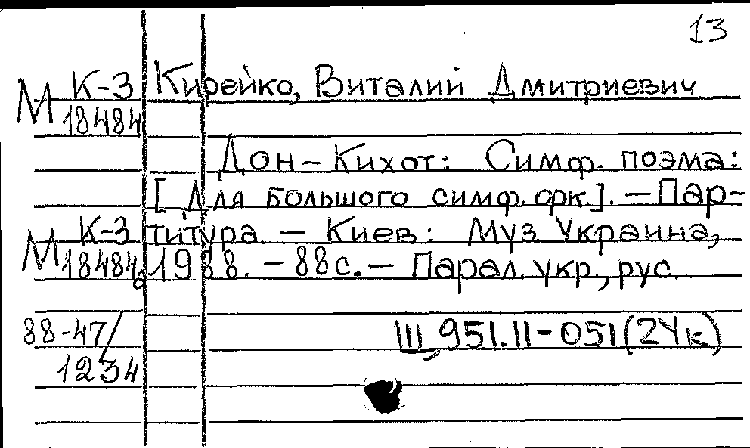 13
М К-3 Кирейко, Виталий Дмитриевич
18484
Дон-Кихот: Симф. поэма:
[Для большого симф. орк]. - Пар-
М К-3 титура. - Киев: Муз Украина,
18484а 1988. - 88с. - Парал. укр., рус.
88-47/
1234
Щ951.11-051(2Ук)